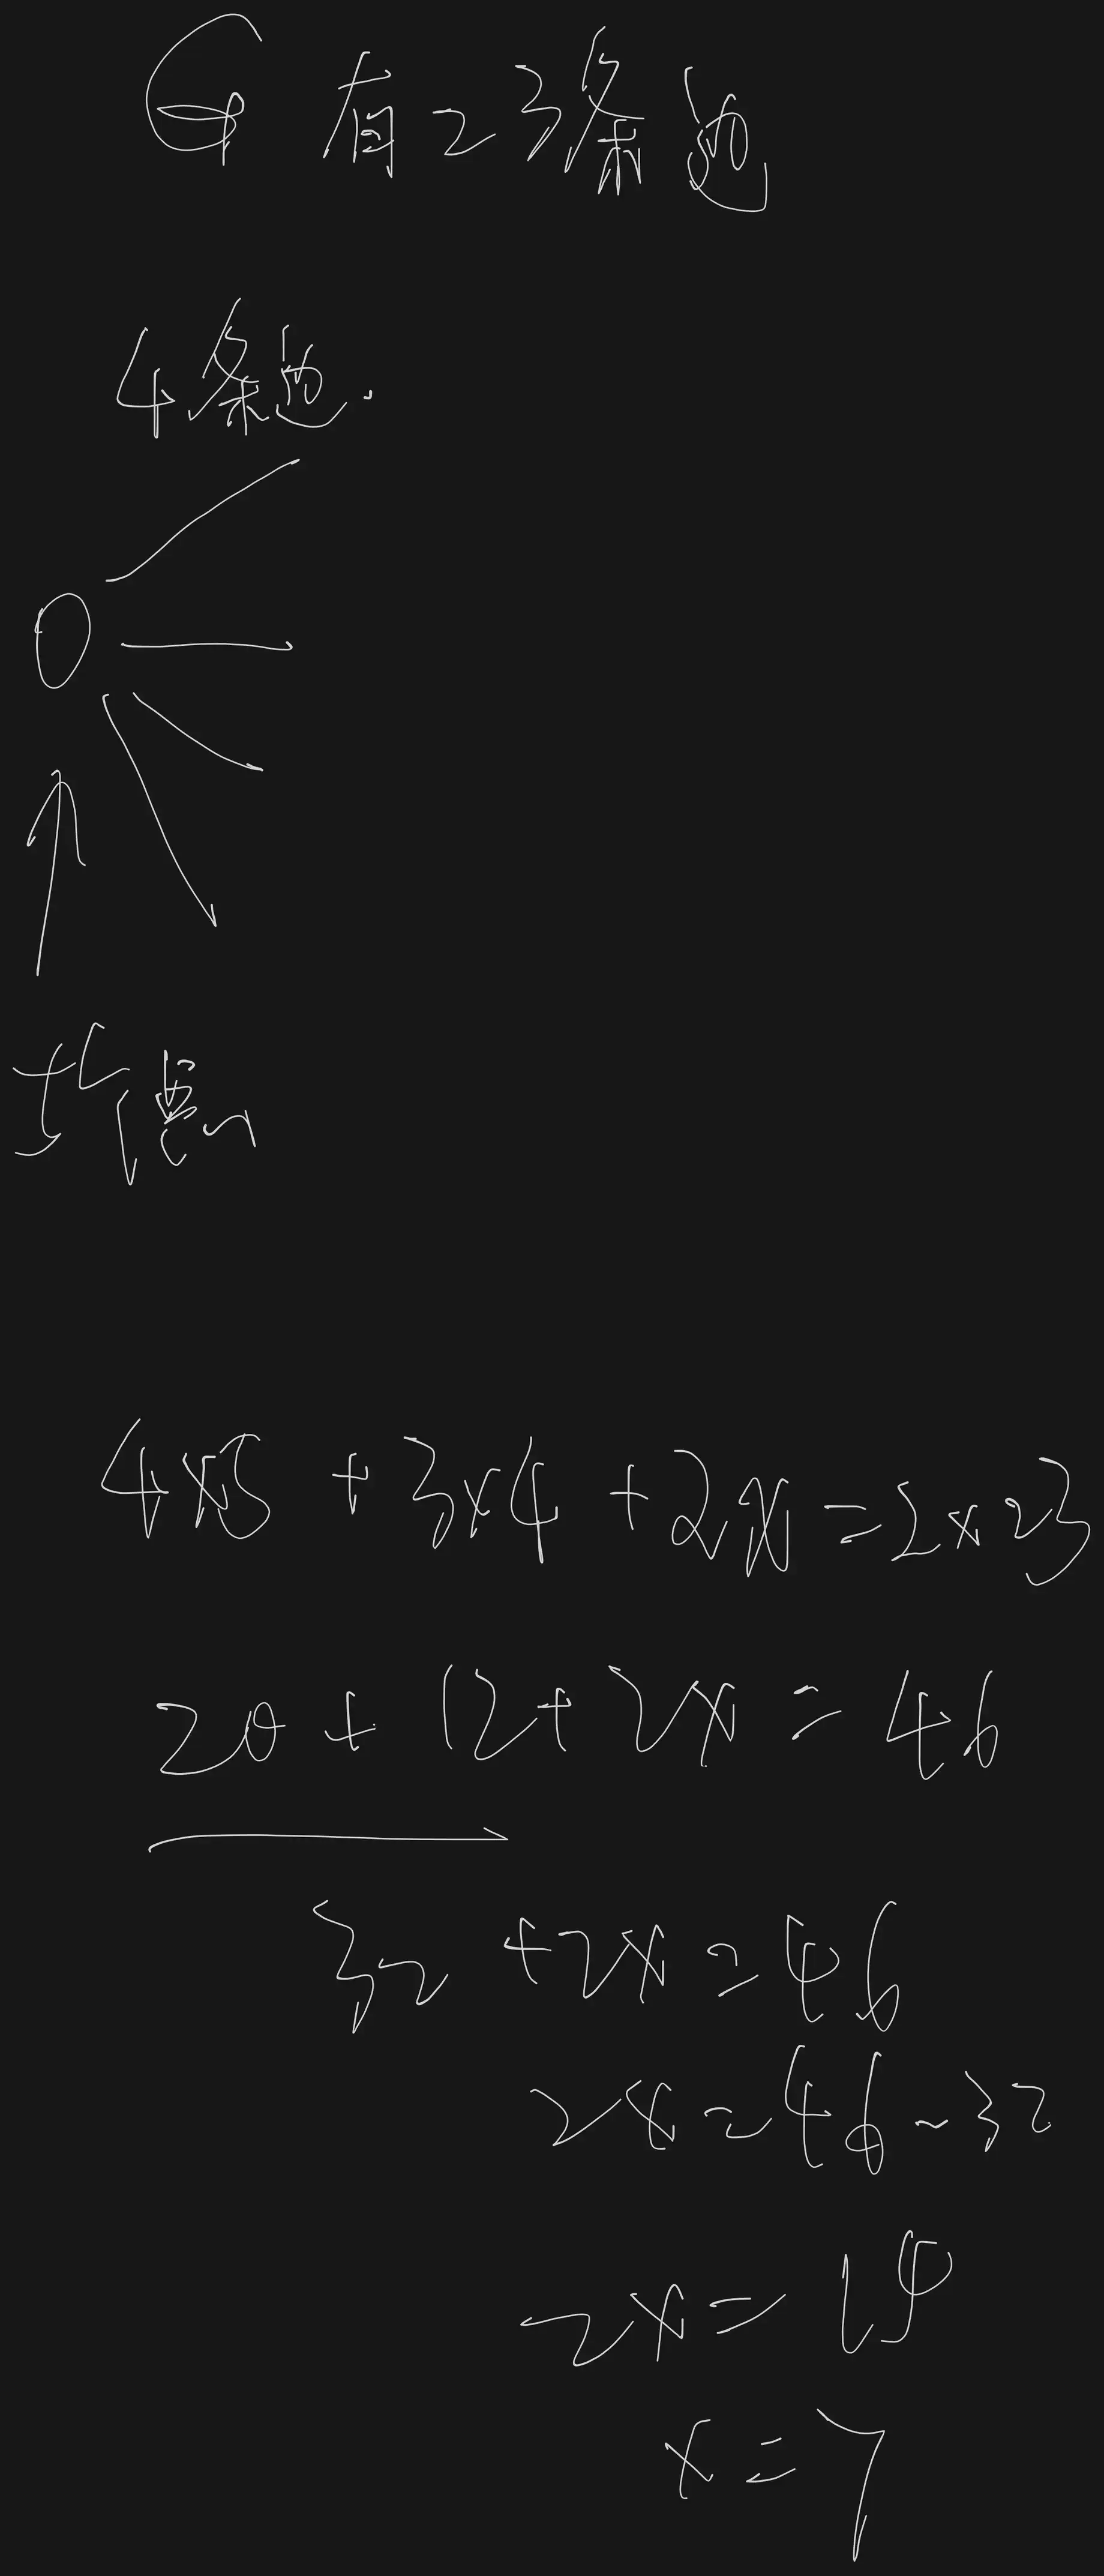 G有23条边
4条边.
4×5 + 3×4 + 2x = 2×23
20 + 12 + 2x = 46
32 + 2x = 46
2x = 46 - 32
2x = 14
x = 7